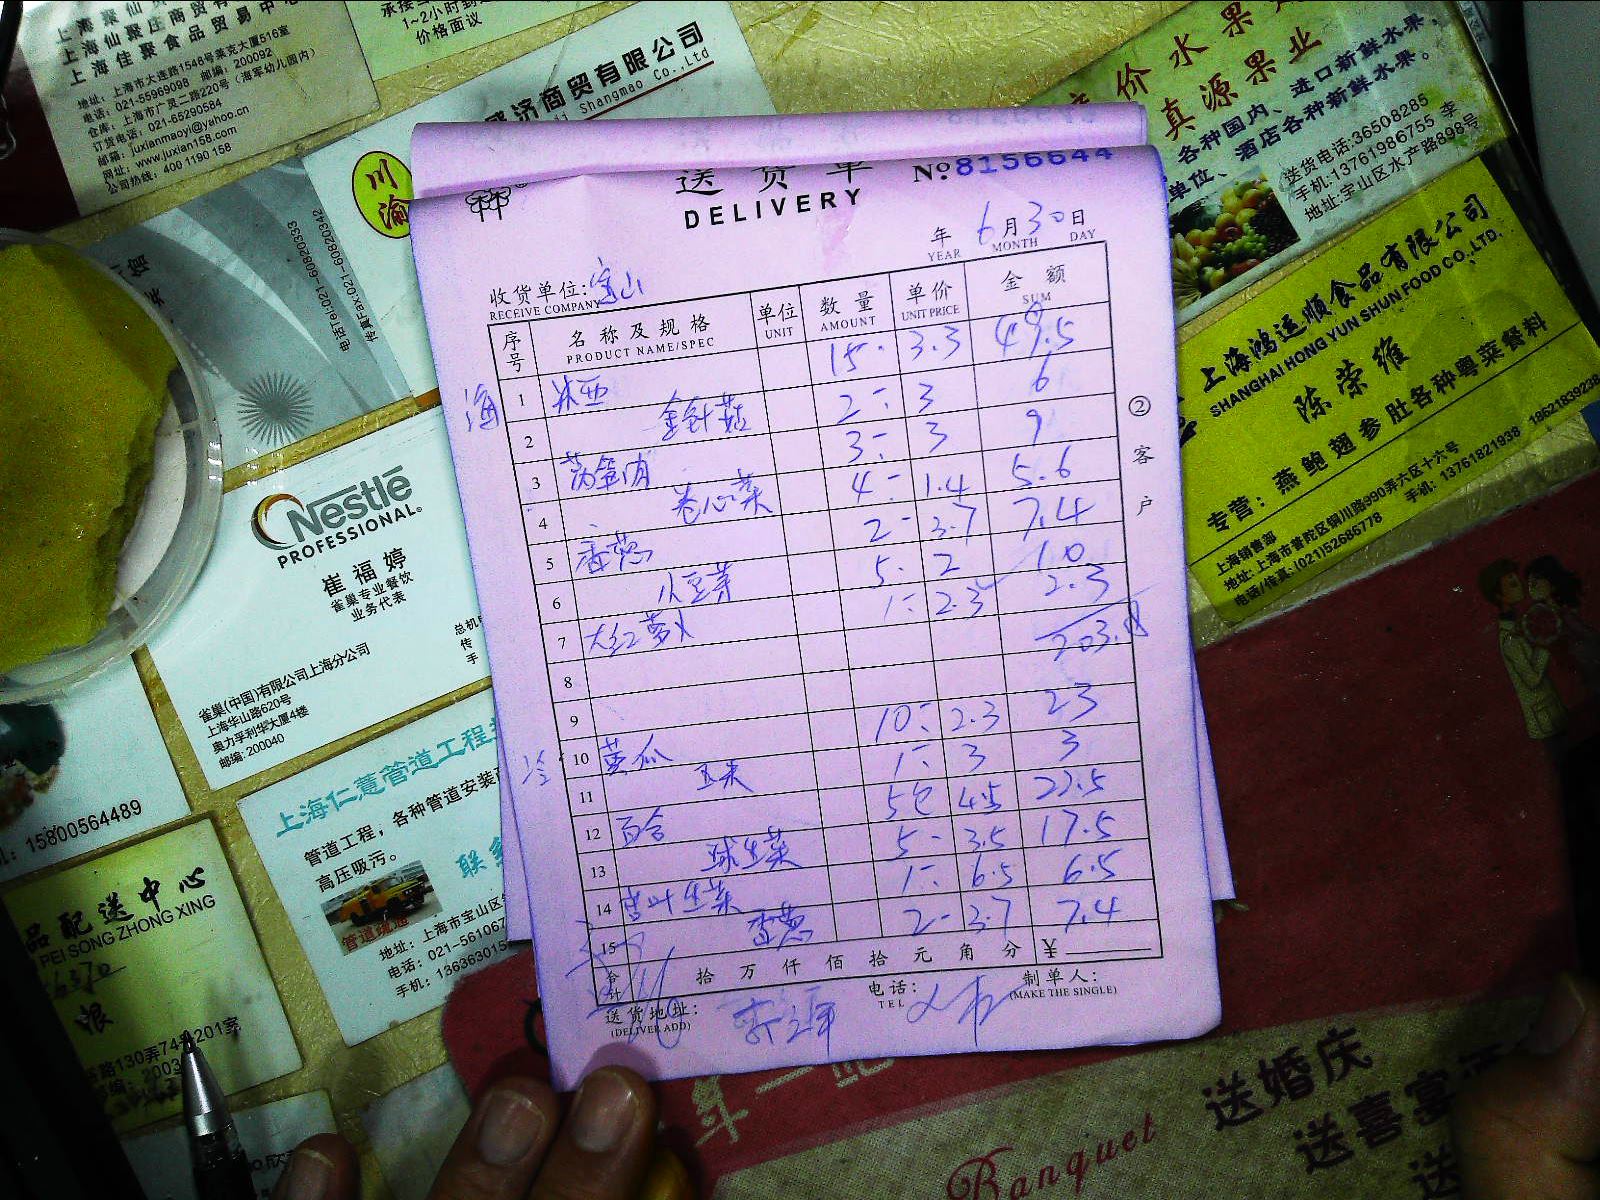 上海仙聚庄商贸有
上海佳聚食品贸易中心
地址：上海市大连路1548号莱克大厦516室
电话：021-55969098 邮编：200092
仓库：上海市广灵二路220号（海军幼儿园内）
订货电话：021-65290584
邮箱：juxianmaoyi@yahoo.cn
网址：www.juxian158.com
公司热线：400 1190 158
1~2小时到
价格面议
济商贸有限公司
Shangmao Co.,Ltd
川渝
电话Tel:021-60820333
传真Fax:021-60820342
价水果
真源果业
各种国内、进口新鲜水果，
单位、酒店各种新鲜水果。
送货电话:36508285
手机:13761986755 李
地址:宝山区水产路898号
上海鸿运顺食品有限公司
SHANGHAI HONG YUN SHUN FOOD CO.,LTD.
陈荣维
专营：燕鲍翅参肚各种粤菜餐料
上海销售部
地址:上海市普陀区铜川路990弄六区十六号
电话/传真:(021)52686778 手机:13761821938 18621839238
送货单 № 8156644
DELIVERY
年 6月30日
YEAR MONTH DAY
收货单位:宝山
RECEIVE COMPANY
序号 名称及规格 单位 数量 单价 金额
PRODUCT NAME/SPEC UNIT AMOUNT UNIT PRICE SUM
15- 3.3 49.5
海 1 冰西 2- 3 6
2 金针菇 3- 3 9
3 莴笋肉 4- 1.4 5.6
4 卷心菜 2- 3.7 7.4
5 香葱 5- 2 10
6 小豆芽 1- 2.3 2.3
7 大红萝卜
8
9 10- 2.3 23
冷 10 黄瓜 1- 3 3
11 玉米 5包 4.5 22.5
12 百合 5- 3.5 17.5
13 球生菜 1- 6.5 6.5
14 生菜 2- 3.7 7.4
15 香葱
合计 拾万仟佰拾元角分 ¥
送货地址: 电话: 制单人:
(DELIVER ADD) TEL (MAKE THE SINGLE)
②客户
Nestlé
PROFESSIONAL®
崔福婷
雀巢专业餐饮
业务代表
总机
传
手
雀巢(中国)有限公司上海分公司
上海华山路620号
奥力孚利华大厦4楼
邮编: 200040
15800564489
上海仁薏管道工程
管道工程，各种管道安装
高压吸污。
联
管道疏通
地址：上海市宝山区
电话：021-56106
手机：13636301
品配送中心
PEI SONG ZHONG XING
路130弄74号201室
Banquet
送婚庆
送喜宴
送